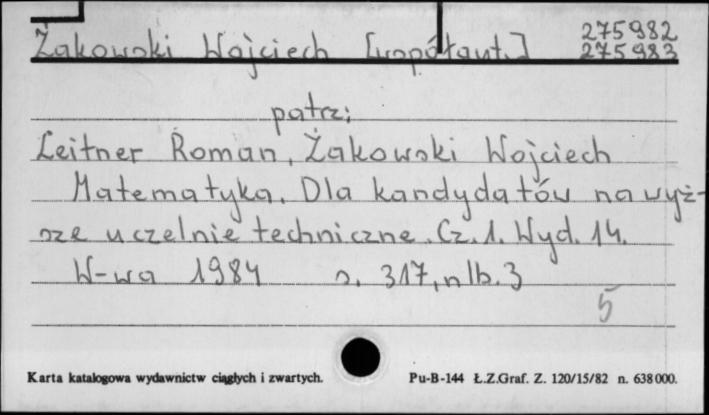 275982
Żakowski Wojciech [współaut.] 275983
patrz:
Leitner Roman, Żakowski Wojciech
Matematyka. Dla kandydatów na wyż-
sze uczelnie techniczne. Cz. 1. Wyd. 14.
W-wa 1984 s. 317, nlb. 3
5
Karta katalogowa wydawnictw ciągłych i zwartych. Pu-B-144 Ł.Z.Graf. Z. 120/15/82 n. 638000.